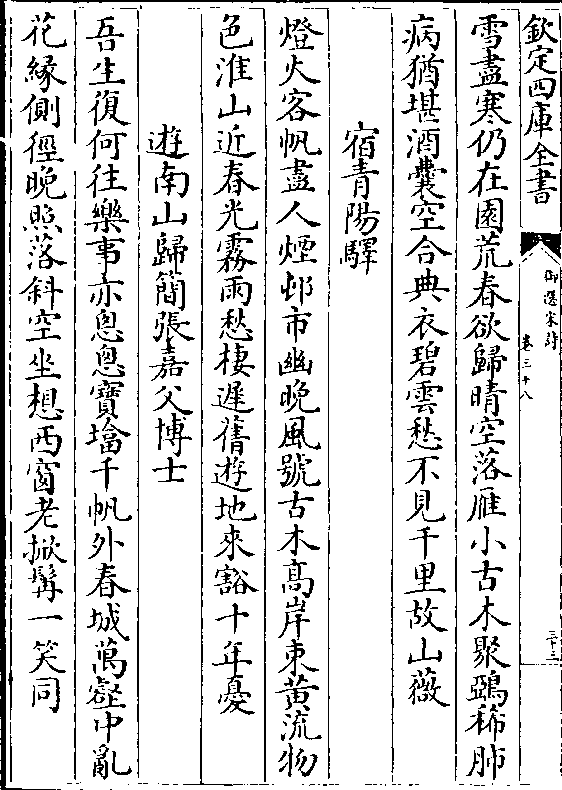 欽定四庫全書
御選宋詩
卷三十八
三十三
雪盡寒仍在園荒春欲歸晴空落雁小古木聚鵶稀肺
病猶堪酒囊空合典衣碧雲愁不見千里故山薇
宿青陽驛
燈火客帆盡人煙邨市幽晚風號古木高岸束黄流物
色淮山近春光霧雨愁棲遲舊遊地來豁十年憂
遊南山歸簡張嘉父博士
吾生復何往樂事亦悤悤寶墖千帆外春城萬壑中亂
花緣側徑晚照落斜空坐想西窗老掀髯一笑同